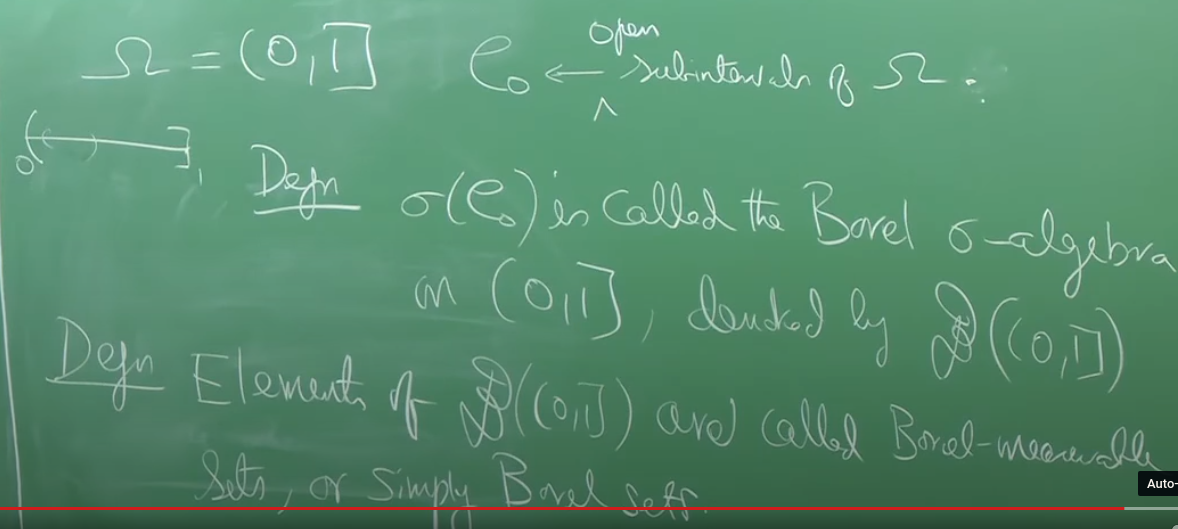 Ω = (0,1] C₀ ← open subintervals of Ω.
0 1
Defn σ(C₀) is called the Borel σ-algebra
on (0,1], denoted by B((0,1])
Defn Elements of B((0,1]) are called Borel-measurable
sets, or simply Borel sets.
Auto-